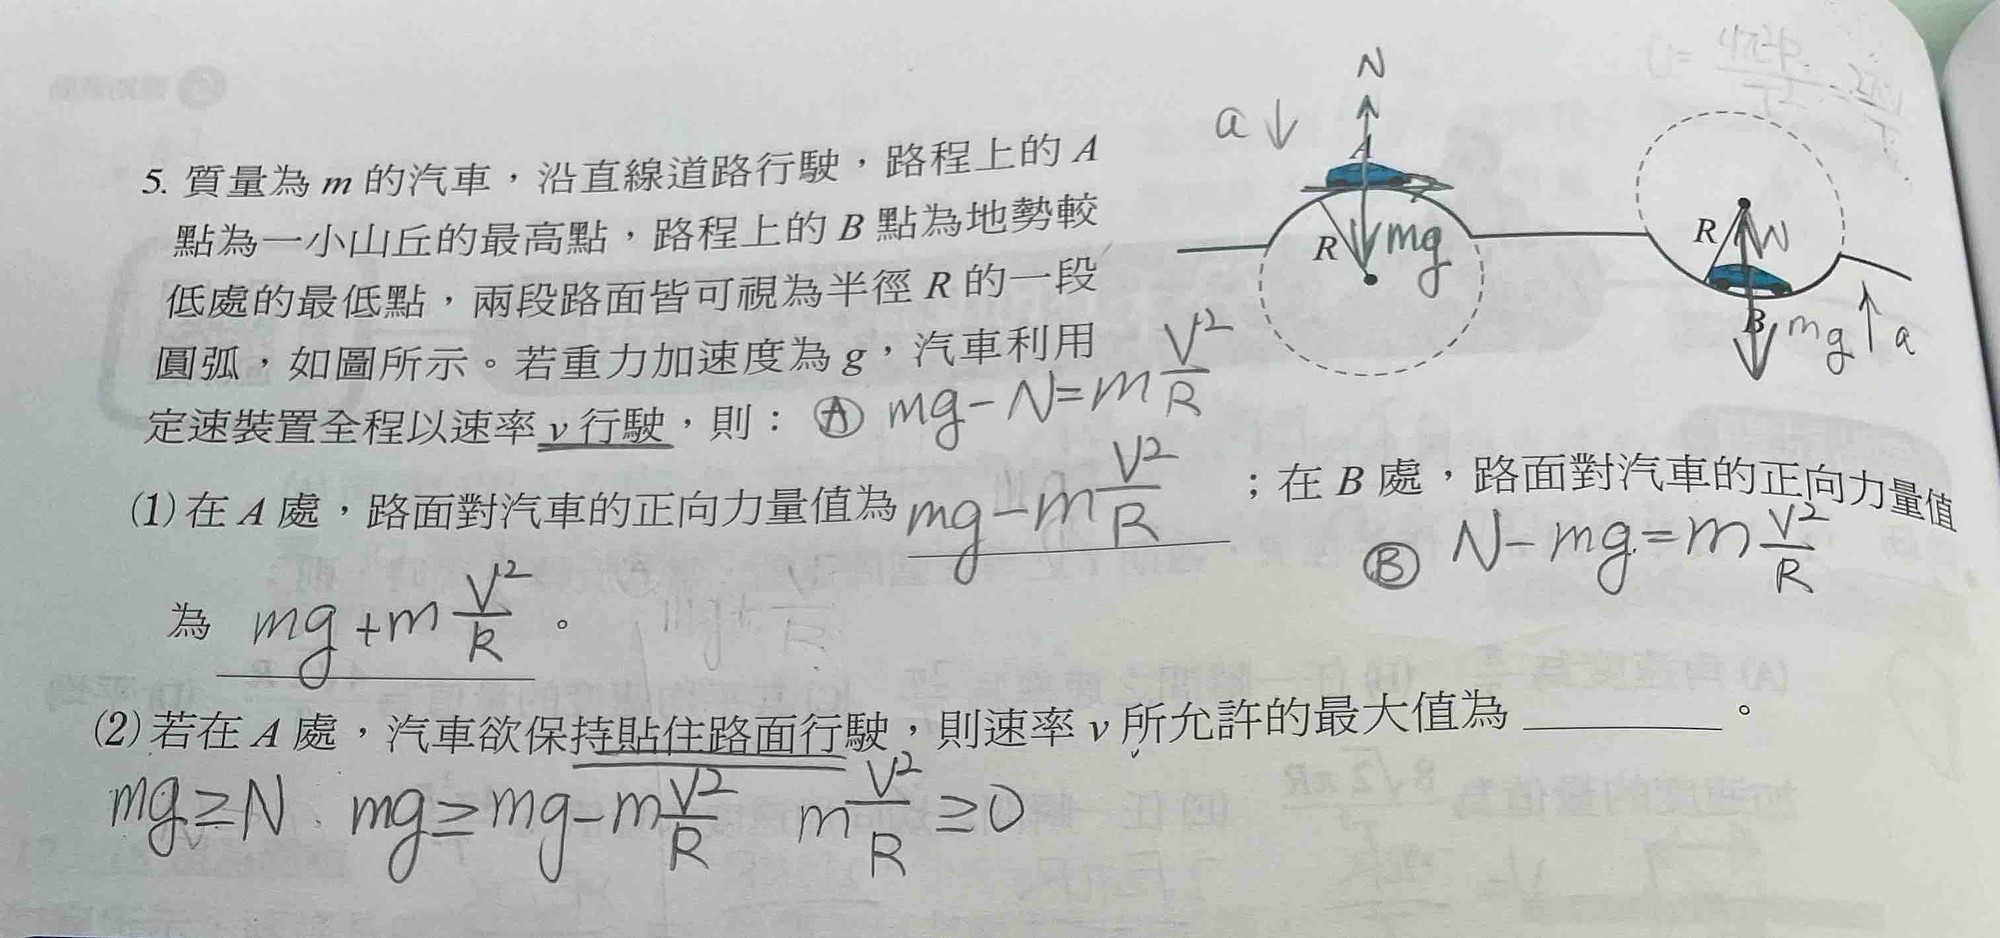 N
a↓
A
R
mg
R
N
B
mg
a
5. 質量為 m 的汽車，沿直線道路行駛，路程上的 A
點為一小山丘的最高點，路程上的 B 點為地勢較
低處的最低點，兩段路面皆可視為半徑 R 的一段
圓弧，如圖所示。若重力加速度為 g，汽車利用
定速裝置全程以速率 v 行駛，則： Ⓐ mg-N=m\frac{V²}{R}
(1) 在 A 處，路面對汽車的正向力量值為 mg-m\frac{V²}{R} ；在 B 處，路面對汽車的正向力量值
Ⓑ N-mg=m\frac{V²}{R}
為 mg+m\frac{V²}{R} 。
(2) 若在 A 處，汽車欲保持貼住路面行駛，則速率 v 所允許的最大值為 ________ 。
mg≥N mg≥mg-m\frac{V²}{R} m\frac{V²}{R}≥0